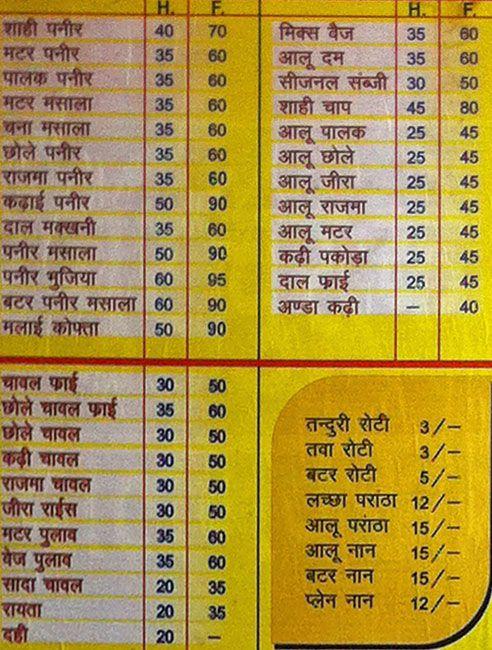 H. F.
शाही पनीर 40 70
मटर पनीर 35 60
पालक पनीर 35 60
मटर मसाला 35 60
चना मसाला 35 60
छोले पनीर 35 60
राजमा पनीर 35 60
कढ़ाई पनीर 50 90
दाल मक्खनी 35 60
पनीर मसाला 50 90
पनीर भुजिया 60 95
बटर पनीर मसाला 60 90
मलाई कोफ्ता 50 90
H. F.
मिक्स वैज 35 60
आलू दम 35 60
सीजनल संब्जी 30 50
शाही चाप 45 80
आलू पालक 25 45
आलू छोले 25 45
आलू जीरा 25 45
आलू राजमा 25 45
आलू मटर 25 45
कढ़ी पकोड़ा 25 45
दाल फ्राई 25 45
अण्डा कढ़ी – 40
चावल फ्राई 30 50
छोले चावल फ्राई 35 60
छोले चावल 30 50
कढ़ी चावल 30 50
राजमा चावल 30 50
जीरा राईस 30 50
मटर पुलाव 35 60
वेज पुलाव 35 60
सादा चावल 20 35
रायता 20 35
दही 20 –
तन्दुरी रोटी 3/–
तवा रोटी 3/–
बटर रोटी 5/–
लच्छा परांठा 12/–
आलू परांठा 15/–
आलू नान 15/–
बटर नान 15/–
प्लेन नान 12/–